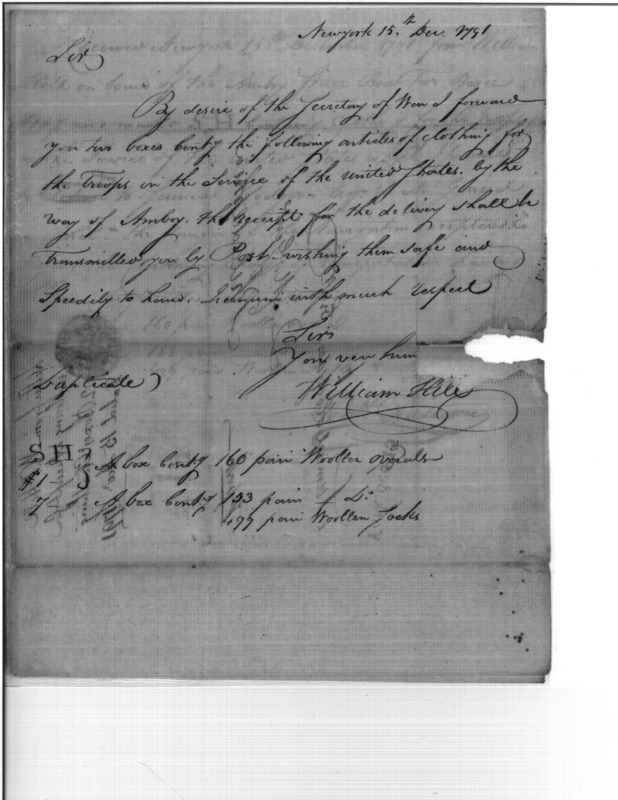 Newyork 15.th Dec 1791
Sir
By desire of the Secretary of War I forward
you two boxes contg the following articles of clothing for
the Troops in the Service of the united States. by the
way of Amboy. the receipt for the delivery shall be
transmitted you by Post. wishing them safe and
Speedily to hand. I remain with much respect
Sir
Your very hum
William Hill
Duplicate)
SH
#1 A box contg 160 pair Woollen overalls
7 A box contg 153 pair Do
499 pair Woollen Socks